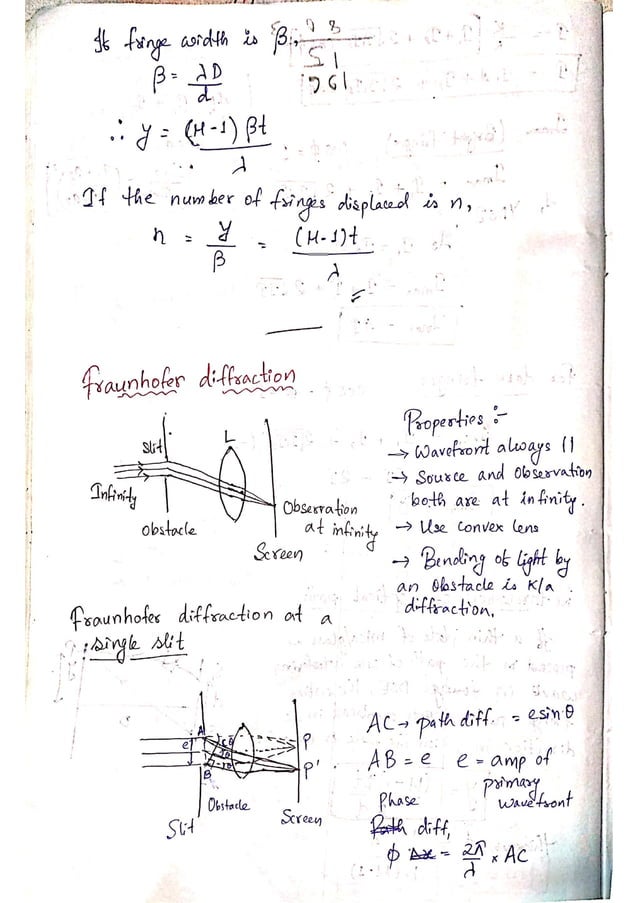 If fringe width is β,
β = λD/d
∴ y = (μ-1) βt/λ
If the number of fringes displaced is n,
n = y/β = (μ-1)t/λ
Fraunhofer diffraction
Slit
L
Infinity
Obstacle
Observation
at infinity
Screen
Properties :-
→ Wavefront always ||
→ Source and Observation
both are at infinity.
→ Use convex lens
→ Bending of light by
an obstacle is K/a
diffraction.
Fraunhofer diffraction at a
single slit
A
e
B
C
P
P'
Obstacle
Slit
Screen
AC → path diff. = e sin θ
AB = e e = amp of
primary
wavefront
Phase
Path diff,
ϕ Δx = 2π/λ × AC